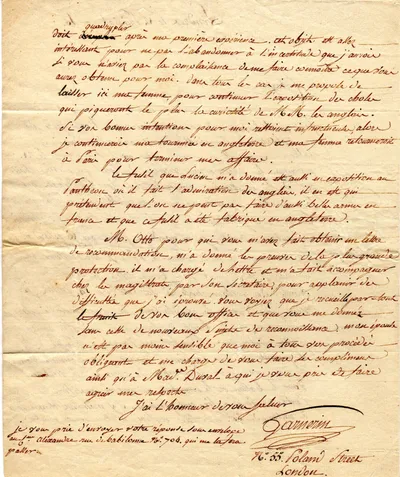 quadrupler
doit avec ma premiere croisiere, cet objet est assez
interessant pour ne pas l'abandonner à l'incertitude que j'aurois
si vous n'aviez pas la complaisance de me faire connoitre ce que vous
avez obtenu pour moi. dans tous les cas je me propose de
laisser ici ma femme pour continuer l'exposition des objets
qui piqueront le plus la curiosité de M.M. les anglais.
Si vos bonnes intentions pour moi restoient infructueuses, alors
je continuerois ma tournée en angleterre et ma femme retourneroit
à Paris pour terminer mes affaires.
le fusil que m'a donné est aussi en exposition au
Panthéon où il fait l'admiration des anglais, il en est qui
prétendent que l'on ne peut pas faire d'aussi belles armes en
france et que ce fusil a été fabriqué en angleterre.
M. Otto pour qui vous m'avez fait obtenir une lettre
de recommandation, m'a donné les preuves de la plus grande
protection, il m'a chargé de lettres et m'a fait accompagner
chez les magistrats par son secretaire, pour applanir les
difficultés que j'ai éprouvé. Vous voyez que je recueille partout
le fruit de vos bons offices et que vous me donnez
sans cesse de nouveaux sujets de reconnoissance. mon épouse
n'est pas moins sensible que moi à tous vos procédés
obligeants et me charge de vous faire ses compliments
ainsi qu'à Mad.e Duval à qui je vous prie de faire
agréer mes respects
J'ai l'honneur de vous saluer
Garnerin
N.o 55. Poland Street
London.
je vous prie d'envoyer votre réponse sous enveloppe
au Cen Alexandre rue de babilonne N.o 704, qui me la fera
passer